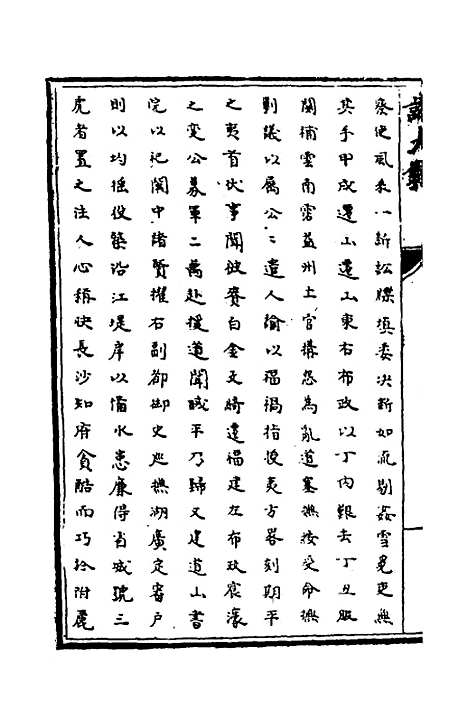 察使風采一新訟牒填委决斷如流剔姦雪冤吏無
英手甲戌遷山遷山東右布政以丁内艱去丁丑服
闋補雲南霑益州土官搆怨為亂道塞撫按受命撫
剿議以屬公公遣人諭以禍福指授夷方畧刻期平
之夷首伏事聞被賚白金文綺遷福建左布政宸濠
之變公募軍二萬赴援道聞賊平乃歸又建道山書
院以祀閩中諸賢擢右副都御史廵撫湖廣定審戶
則以均徭役築沿江堤岸以備水患廉得省城號三
虎者置之法人心稱快長沙知府貪酷而巧於附麗